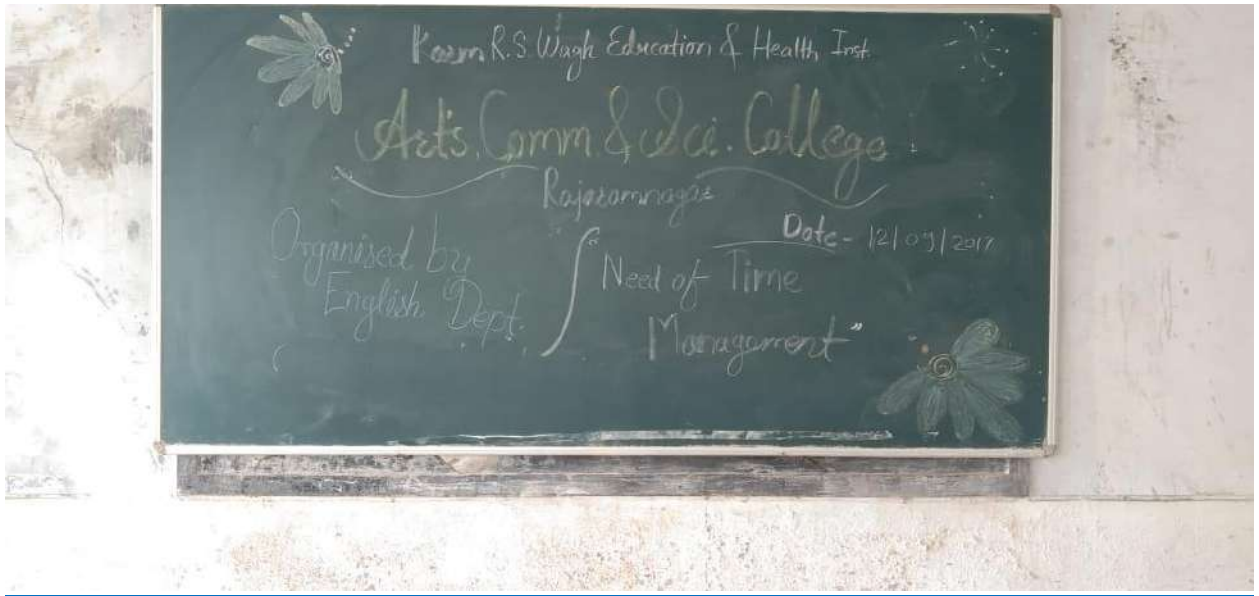 Karm R.S. Wagh Education & Health Inst.
Art's. Comm. & Sci. College
Rajaramnagar
Date - 12/09/2017
Organised by
English Dept.
“Need of Time
Management”